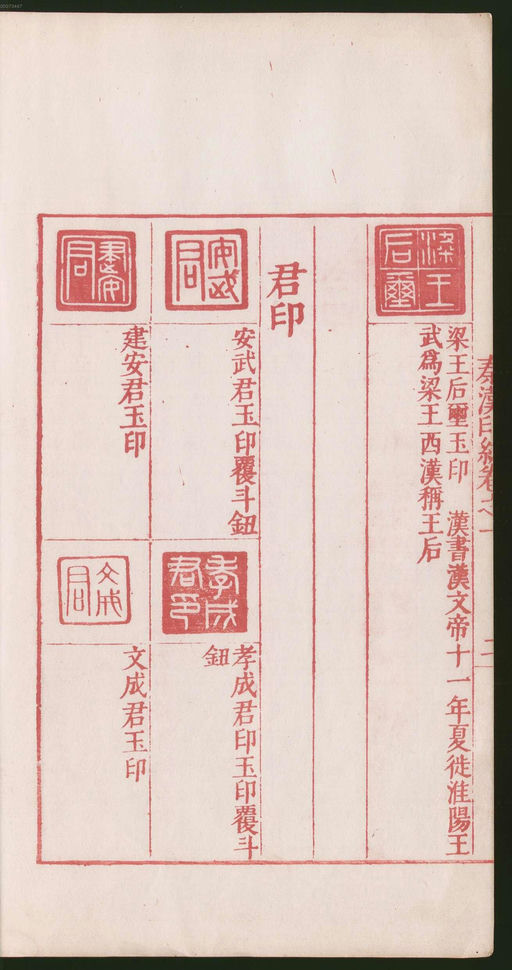 秦漢印統卷之一
二
梁王后璽
梁王后璽玉印　漢書漢文帝十一年夏徙淮陽王
武爲梁王西漢稱王后
君印
安武君
安武君玉印覆斗鈕
孝成君印
孝成君印玉印覆斗
鈕
建安君
建安君玉印
文成君
文成君玉印